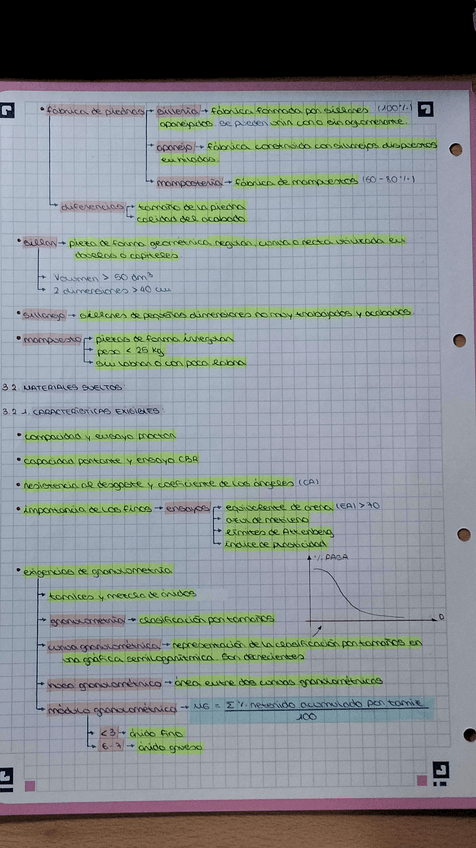 • fábrica de piedras → sillería → fábrica formada por sillares (100%)
aparejados se pueden unir con o sin aglomerante.
→ aparejo → fábrica construida con sillarejos dispuestos
en hiladas.
→ mampostería → fábrica de mampuestos (60-80%)
→ diferencias → tamaño de la piedra
→ calidad del acabado
• sillar → pieza de forma geométrica regular, curva o recta utilizada en
dovelas o capiteles
→ Volumen > 50 dm³
→ 2 dimensiones > 40 cm
• sillarejo → sillares de pequeñas dimensiones no muy trabajados y acabados.
• mampuesto → piezas de forma irregular
→ peso < 25 kg
→ sin labrar o con poca labra
3.2 MATERIALES SUELTOS
3.2.1. CARACTERÍSTICAS EXIGIBLES:
• compacidad y ensayo proctor
• capacidad portante y ensayo CBR
• resistencia al desgaste y coeficiente de los ángeles (CA)
• importancia de los finos → ensayos → equivalente de arena (EA) > 70
→ azul de metileno
→ límites de Attenberg
→ índice de plasticidad
• exigencias de granulometría
% PASA
D
→ tamices y mezcla de áridos
→ granulometría → clasificación por tamaños
→ curva granulométrica → representación de la clasificación por tamaños en
una gráfica semilogarítmica. Son decrecientes
→ huso granulométrico → área entre dos curvas granulométricas
→ módulo granulométrico → MG = Σ % retenido acumulado por tamiz
100
→ <3 → árido fino
→ 6-7 → árido grueso